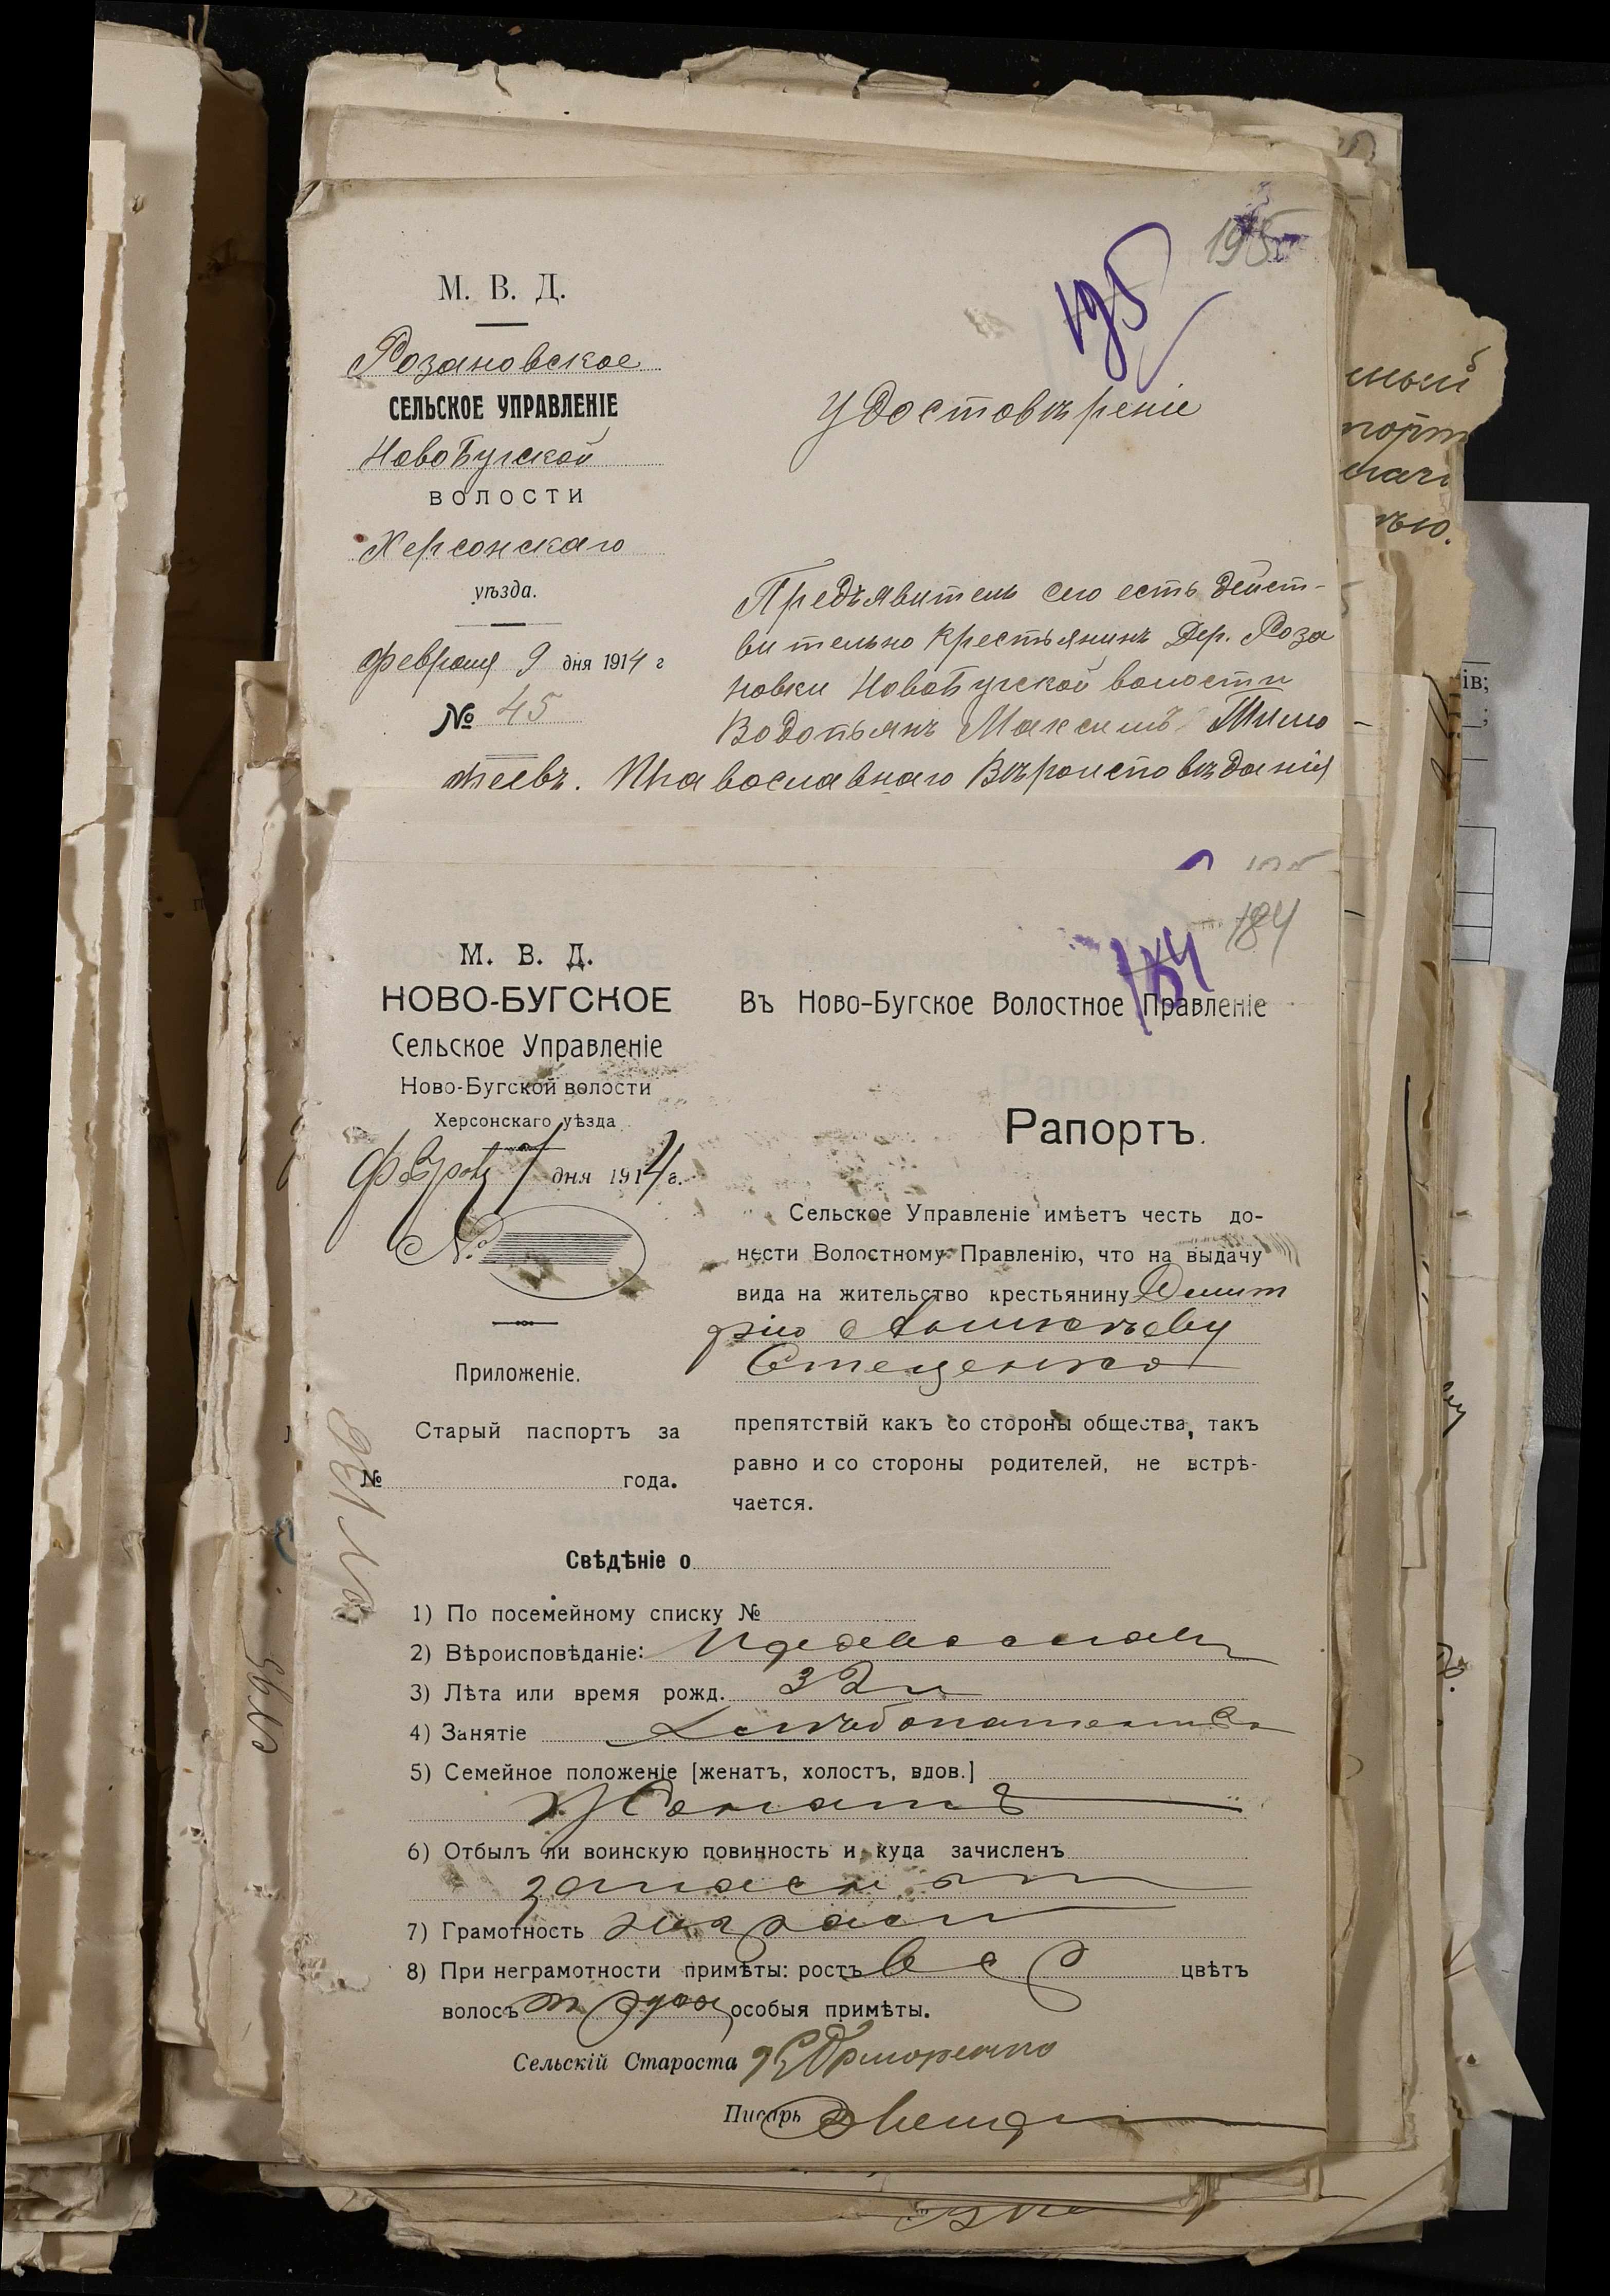 195
195
М. В. Д.
Розановское
СЕЛЬСКОЕ УПРАВЛЕНІЕ
НовоБугской
ВОЛОСТИ
Херсонскаго
уѣзда.
Февраля 9 дня 1914 г
№ 45
Удостовѣреніе
Предъявитель сего есть дейст-
вительно крестьянинъ Дер. Роза
новки НовоБугской волости
Водопьянъ Максимъ Тимо
феевъ. Православнаго Вѣроисповѣданія
184
184
М. В. Д.
НОВО-БУГСКОЕ
Сельское Управленіе
Ново-Бугской волости
Херсонскаго уѣзда
дня 1914 г.
№
Приложеніе.
Старый паспортъ за
№ года.
Въ Ново-Бугское Волостное Правленіе
Рапортъ.
Сельское Управленіе имѣетъ честь до-
нести Волостному Правленію, что на выдачу
вида на жительство крестьянину Димит
рію
Стеценко
препятствій какъ со стороны общества, такъ
равно и со стороны родителей, не встрѣ-
чается.
Свѣдѣніе о
1) По посемейному списку №
2) Вѣроисповѣданіе: Православн
3) Лѣта или время рожд. 32 л
4) Занятіе Хлѣбопашество
5) Семейное положеніе [женатъ, холостъ, вдов.]
Женатъ
6) Отбылъ ли воинскую повинность и куда зачисленъ
запасн
7) Грамотность
8) При неграмотности примѣты: ростъ цвѣтъ
волосъ особыя примѣты.
Сельскій Староста
Писарь
№95